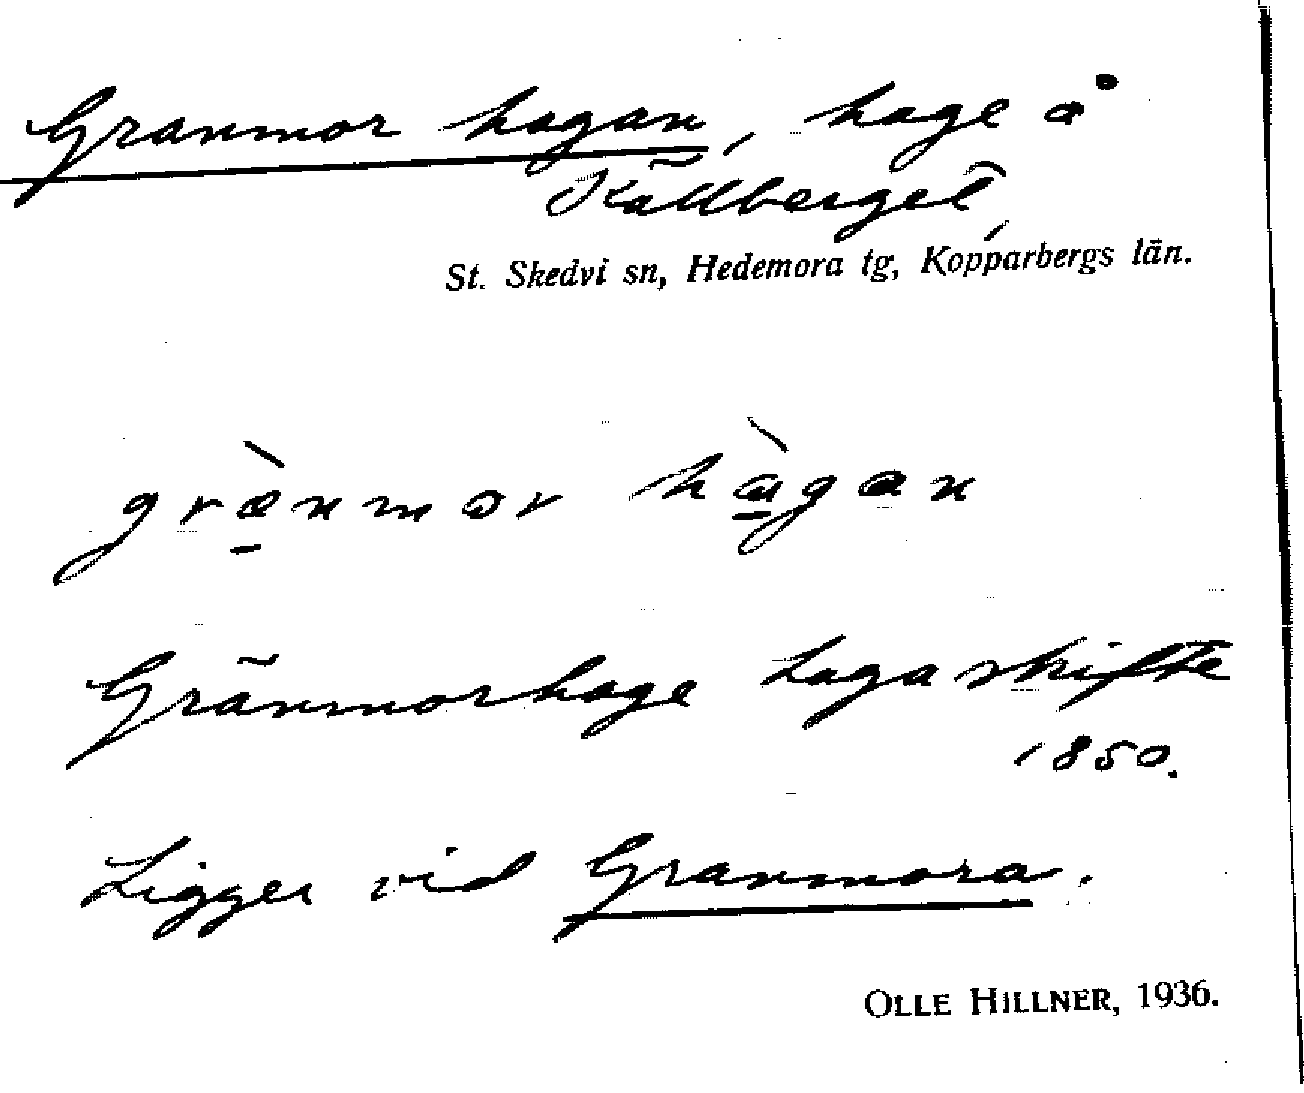 Granmor hagan, hage å
Källberget,
St. Skedvi sn, Hedemora tg, Kopparbergs län.
Gränmorhage Laga skifte
1850.
Ligger vid Granmora.
OLLE HILLNER, 1936.